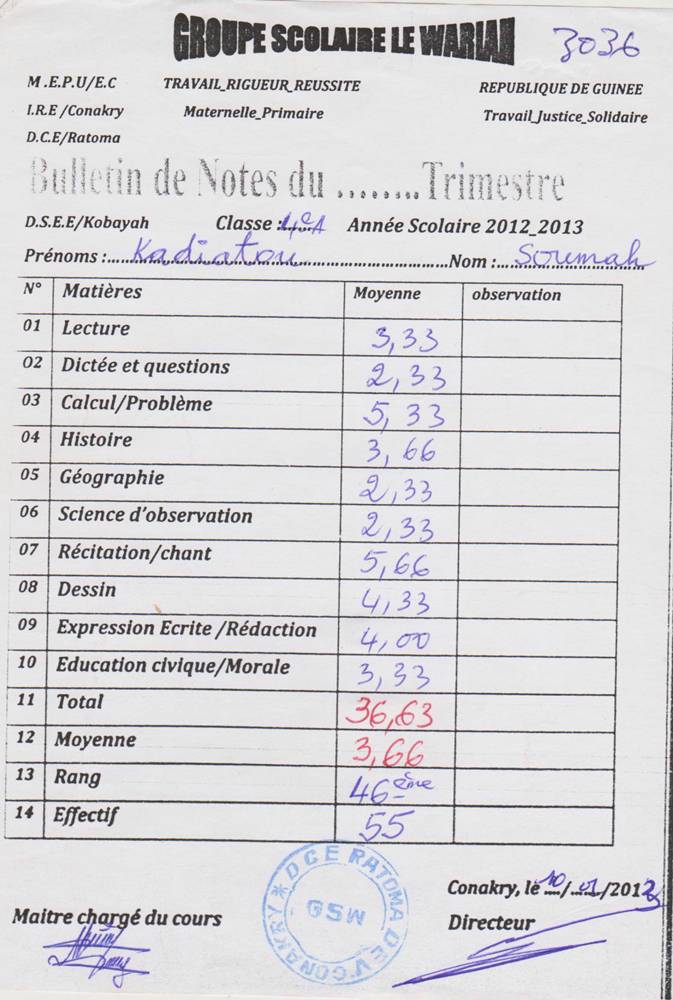 GROUPE SCOLAIRE LE WARIAN 3036
M .E.P.U/E.C TRAVAIL_RIGUEUR_REUSSITE REPUBLIQUE DE GUINEE
I.R.E /Conakry Maternelle_Primaire Travail_Justice_Solidaire
D.C.E/Ratoma
Bulletin de Notes du ........Trimestre
D.S.E.E/Kobayah Classe :4e A Année Scolaire 2012_2013
Prénoms :...Kadiatou...Nom :...Soumah
N° Matières Moyenne observation
01 Lecture 3,33
02 Dictée et questions 2,33
03 Calcul/Problème 5,33
04 Histoire 3,66
05 Géographie 2,33
06 Science d'observation 2,33
07 Récitation/chant 5,66
08 Dessin 4,33
09 Expression Ecrite /Rédaction 4,00
10 Education civique/Morale 3,33
11 Total 36,63
12 Moyenne 3,66
13 Rang 46ème
14 Effectif 55
DCE RATOMA
GSW
Conakry, le 10/01/2013
Maitre chargé du cours Directeur